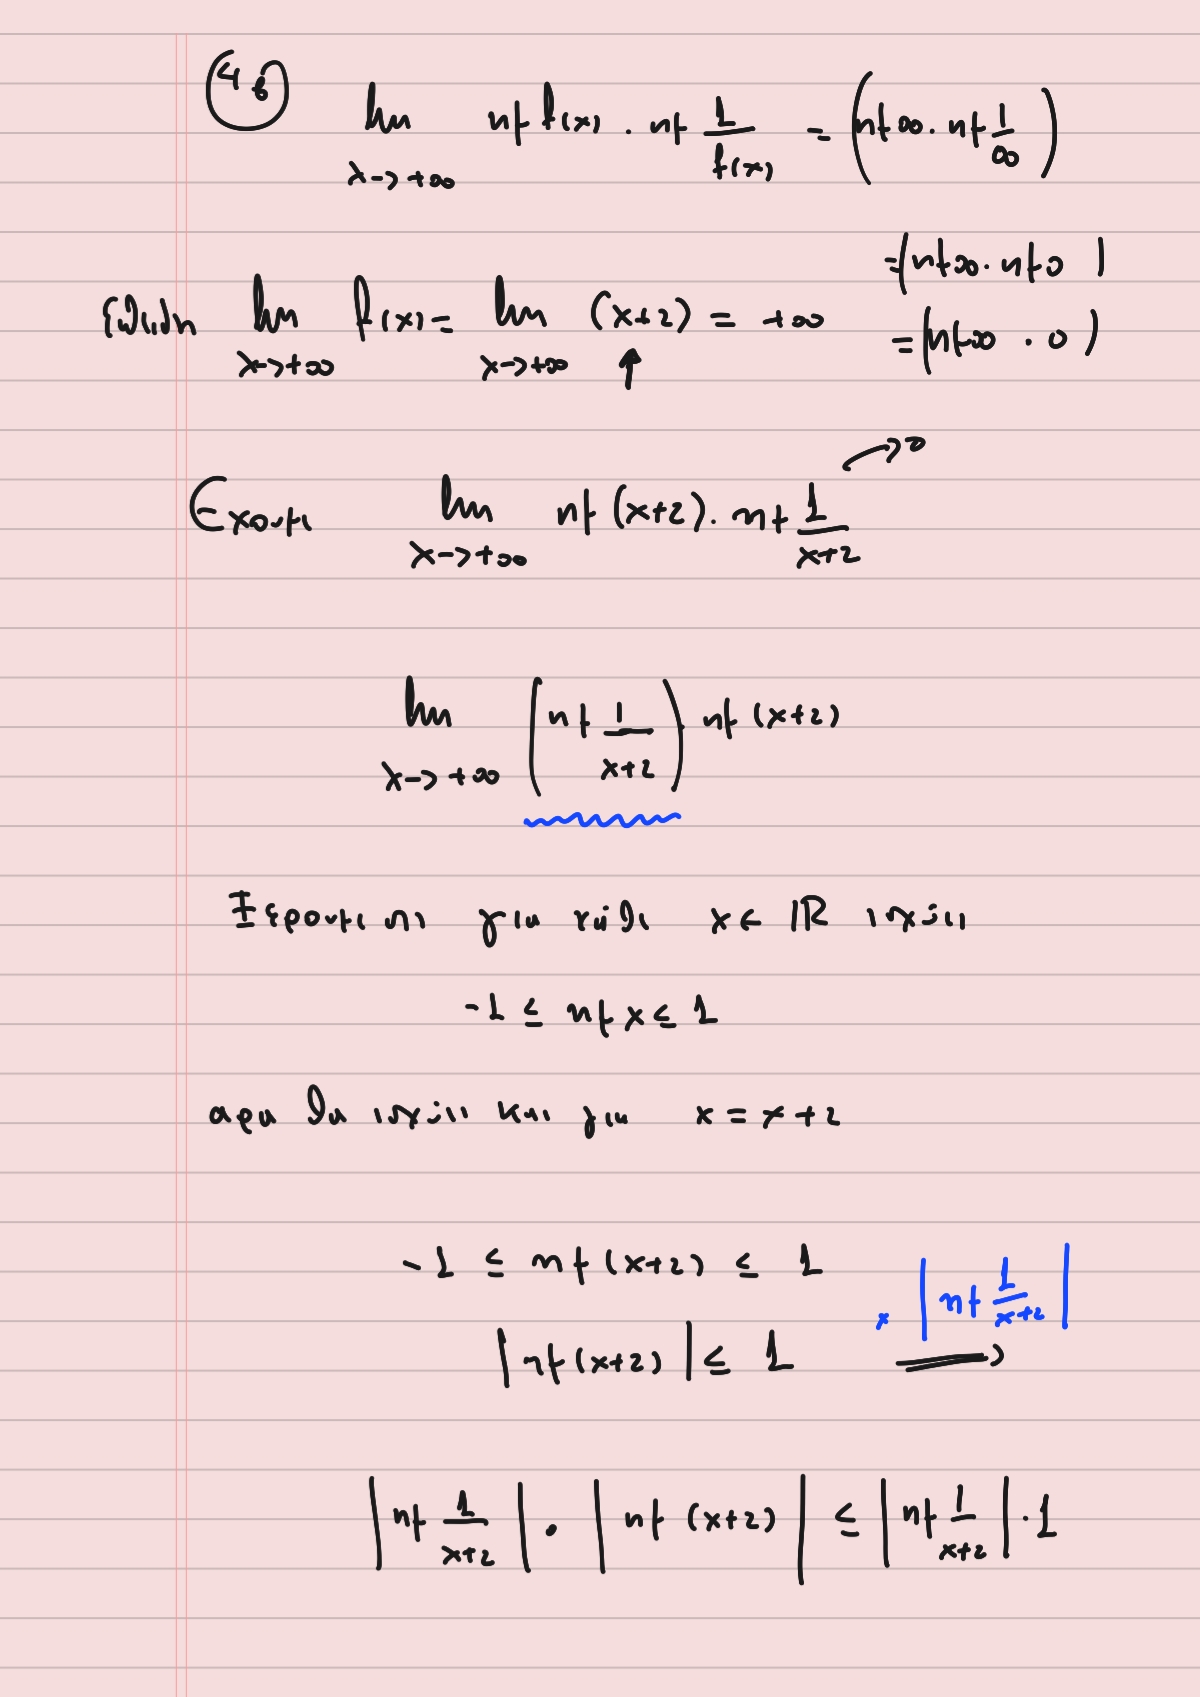 4β
lim x->+∞ ημ f(x) · ημ 1/f(x) = (ημ∞ · ημ 1/∞)
=(ημ∞ · ημ0)
Επειδή lim x->+∞ f(x) = lim x->+∞ (x+2) = +∞
=(ημ∞ · 0)
↑
Εχουμε lim x->+∞ ημ(x+2) · ημ 1/(x+2) → 0
lim x->+∞ (ημ 1/(x+2)) ημ(x+2)
Ξερουμε οτι για καθε x ∈ ℝ ισχυει
-1 ≤ ημx ≤ 1
αρα θα ισχυει και για x = x+2
-1 ≤ ημ(x+2) ≤ 1
|ημ(x+2)| ≤ 1 x |ημ 1/(x+2)| ⟹
|ημ 1/(x+2)| · |ημ(x+2)| ≤ |ημ 1/(x+2)| · 1